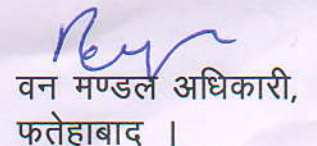 वन मण्डल अधिकारी,
फतेहाबाद ।